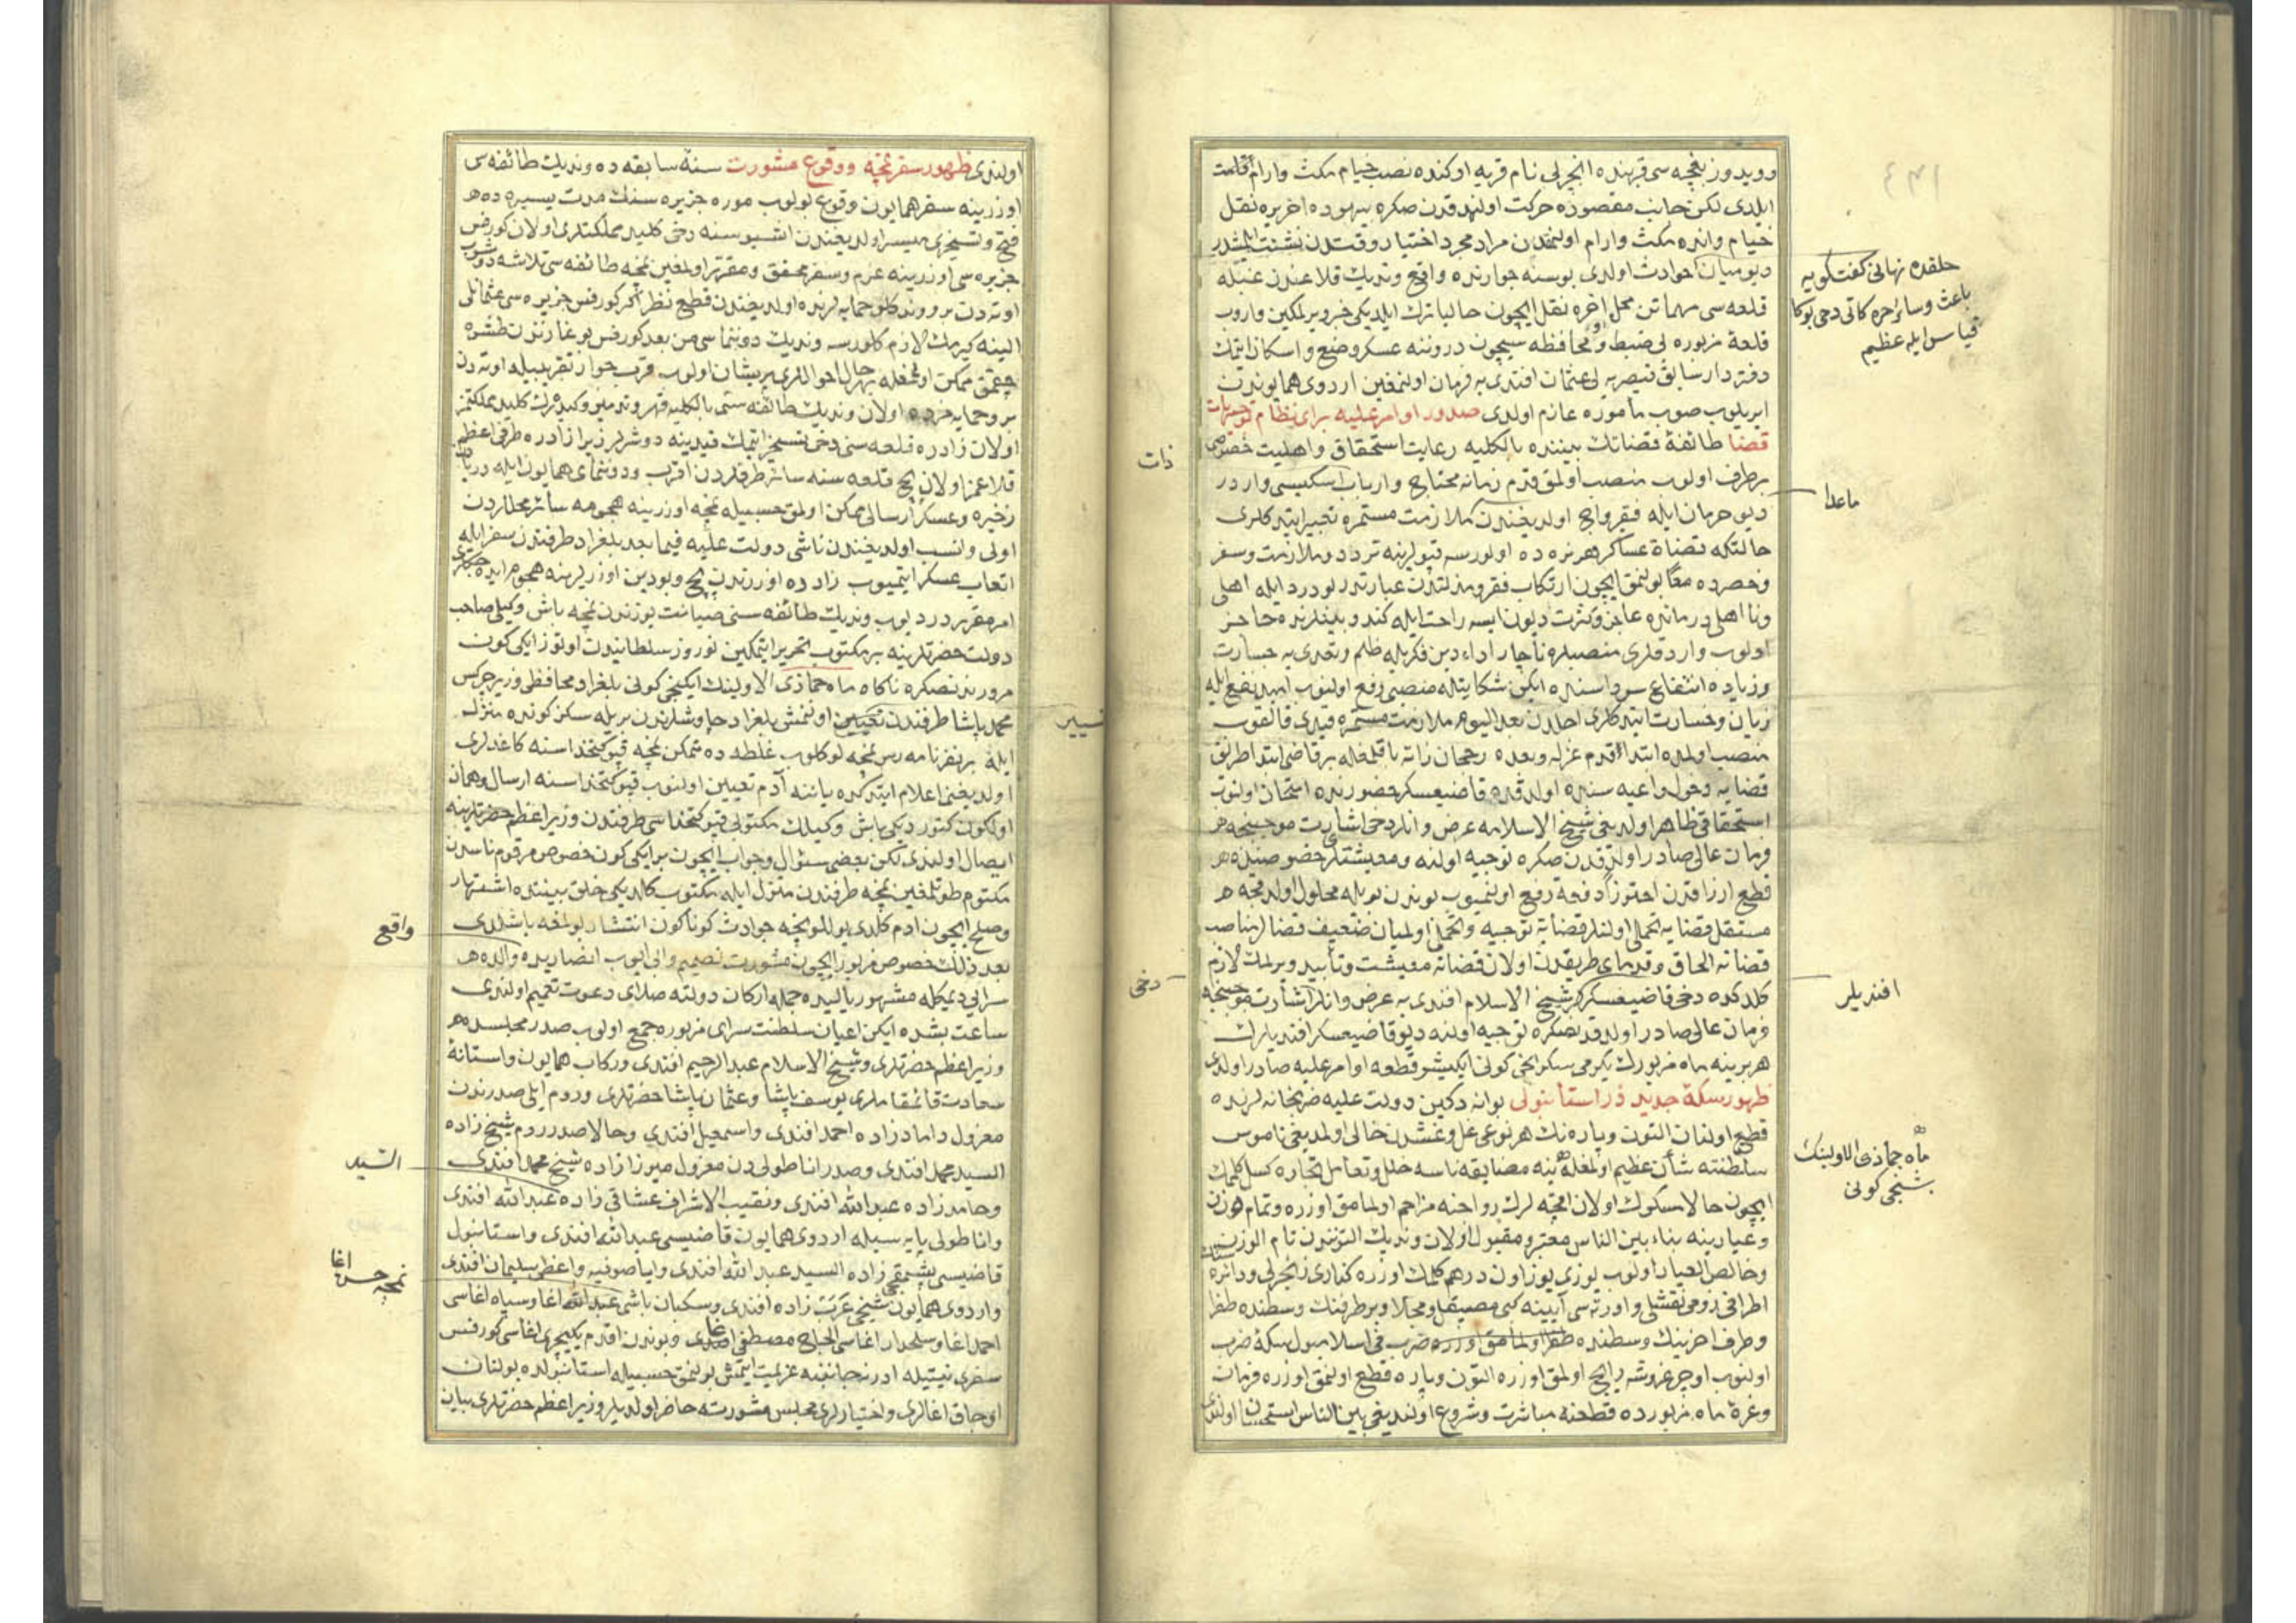 دویدوز بغچه سی قربنده انجرلی نام قریه اوکنده نصب خیام مکث وارام اقامت
ایلدی لکن جانب مقصوده حرکت اولندقدن صکره بیهوده اخر یره نقل
خیام وانده مکث وارام اولنمقدن مراد مجرد اختیار وقتدن نشئت ایتمشدر
دیو میان حوادث اولدی بوسنه جوارنده واقع وندیك قلاعندن
قلعه سی مهماتن محل اخره نقل ایچون حالیا ترك ایلدیکی خبر ویرلمکین واروب
قلعهٔ مزبوره یی ضبط ومحافظه سیچون دروننه عسکر وضع واسکان ایتمك
دفتردار سابق قیصریه لی عثمان افندی یه فرمان اولنمغین اردوی همایوندن
ایریلوب صوب مأموره عازم اولدی صدور اوامر علیه برای نظام توجیهات
قضا طائفهٔ قضاتك بیننده بالکلیه رعایت استحقاق واهلیت خصوصی
برطرف اولوب منصب اولمق قدم زمانه محتاج وارباب اسکیسی واردر
دیو حرمان ایله فقرواج اولدیغندن ملازمت مستمره تعبیر ایتدکلری
حالتکه قضاة عساکر هر نره ده اولورسه قپولرینه تردد وملازمت وسفر
وحضرده معا بولنمق ایچون ارتکاب فقر ومذلتدن عبارتدر بو درد ایله اهلی
ونا اهلی درمانده عاجز وکثرت دیون ایسه راحت ایله کندو بینلرنده حاجز
اولوب واردقلری منصبلره ناچار اداء دین فکریله ظلم وتعدی یه جسارت
وزیاده انتفاع سوداسنده ایکن شکایتله منصبی رفع اولنوب امید نفع ایله
زیان وخسارت ایتدکلری اجلدن بعد الیوم ملازمت مستمره قیدی قالقوب
منصب اولمده ابتدا اقدم عزله وبعده رجحان ذاته باقلمغله بر قاضی ابتدا طریق
قضایه دخول داعیه سنده اولدقده قاضیعسکر حضورنده امتحان اولنوب
استحقاقی ظاهر اولدیغی شیخ الاسلامه عرض وانلر دخی اشارت موجبنجه
فرمان عالی صادر اولدقدن صکره توجیه اولنه ومعیشتلر خصوصنده
قطع ارزاقدن احترازا دفعة رفع اولنمیوب بوندن بویله محلول اولدقجه
مستقل قضایه تحملی اولنلر قضایه توجیه وتحملی اولمیان ضعیف قضالر مناصب
قضاته الحاق وقدمای طریقدن اولان قضاته معیشت وتأبید ویرلمك لازم
کلدکده دخی قاضیعسکرلر شیخ الاسلام افندی یه عرض وانلر اشارت موجبنجه
فرمان عالی صادر اولدقدنصکره توجیه اولنه دیو قاضیعسکر افندیلرك
هربرینه ماه مزبورك یکرمی سکزنجی کونی ایکیشر قطعه اوامر علیه صادر اولدی
ظهور سکهٔ جدید در استانبول بوانه دکین دولت علیه ضربخانه لرنده
قطع اولنان التون وپاره نك هر نوعی غل وغشدن خالی اولمدیغی ناموس
سلطنته شأن عظیم اولمغله ینه مضایقه ناسه خلل وتعامل تجاره کسل کلمك
ایچون حالا مسکوك اولان اقچه لرك رواجنه مزاحم اولمامق اوزره وتمام وزن
وعیارینه بناء بین الناس معتبر ومقبول اولان وندیك التونندن تام الوزن
وخالص العیار اولوب یوزی یوز اون درهم کلمك اوزره کناری زنجرلی ودائره
اطرافی رومی نقشلی واورته سی آیینه کبی مصیقل ومجلا وبر طرفنك وسطنده طغرا
وطرف اخرینك وسطنده ضرب فی اسلامبول سکهٔ ضرب
اولنوب اوچر غروشه رایج اولمق اوزره التون وپاره قطع اولنمق اوزره فرمان
وغرهٔ ماه مزبورده قطعنه مباشرت وشروع اولندیغی بین الناس استحسان اولندی
حلقده نهانی کفتکویه
باعث وسائر حرکاتی دخی بوکا
قیاس ایله عظیم
ماعدا
افندیلر
ماه جماذی الاولینك
بشنجی کونی
ذات
دخی
اولندی ظهور سفر نمچه ووقوع مشورت سنهٔ سابقه ده وندیك طائفه سی
اوزرینه سفر همایون وقوع بولوب موره جزیره سنك مدت یسیره ده
فتح وتسخیری میسر اولدیغندن اشبو سنه دخی کلید مملکتلری اولان کورفس
جزیره سی اوزرینه عزم وسفر محقق ومقرر اولمغین نمچه طائفه سی تلاشه دوشوب
اوته دن برو وندکلو حمایه لرنده اولدیغندن قطع نظر اکر کورفس جزیره سی عثمانلی
الینه کیرمك لازم کلورسه وندیك دوننماسی من بعد کورفس بوغازندن طشره
چقمق ممکن اولمامغله بهر حال احواللری پریشان اولوب قرب جوار تقریبیله اوته دن
برو حمایه مزده اولان وندیك طائفه سنی بالکلیه قهر وتدمیر وکیدرك کلید مملکتمز
اولان زادره قلعه سنی دخی تسخیر ایتمك قیدینه دوشرلر زیرا زادره طرفی اعظم
قلاعمز اولان بچ قلعه سنه سائر طرفلردن اقرب ودوننمای همایون ایله دریادن
ذخیره وعسکر ارسالی ممکن اولمق حسبیله نمچه اوزرینه هجومه سائر محللردن
اولی وانسب اولدیغندن ناشی دولت علیه فیما بعد بلغراد طرفندن سفر ایله
اتعاب عسکر ایتمیوب زادره اوزرندن بچ وبودین اوزرلرینه هجوم ایده جکلری
امر مقرردر دیوب وندیك طائفه سنی صیانت یوزندن نمچه باش وکیلی صاحب
دولت حضرتلرینه بر مکتوب تحریر ایتمکین نوروز سلطانیدن اوتوز ایکی کون
مرورندنصکره ناکاه ماه جماذی الاولینك ایکنجی کونی بلغراد محافظی وزیر چرکس
محمد پاشا طرفندن تعیین اولنمش بلغراد چاوشلرندن بریله سکز کونده منزل
ایله بر نفر نامه رس نمچه لو کلوب غلطه ده متمکن نمچه قپو کتخداسنه کاغدلری
اولدیغنی اعلام ایتدکده یاننه آدم تعیین اولنوب قپو کتخداسنه ارسال وهمان
اولکون کتوردیکی باش وکیلك مکتوبی قپو کتخداسی طرفندن وزیر اعظم حضرتلرینه
ایصال اولندی لکن بعضی سؤال وجواب ایچون بر ایکی کون خصوص مرقوم ناسدن
مکتوم طوتلمغین نمچه طرفندن منزل ایله مکتوب کلدیکی خلق بیننده اشتهار
وصلح ایچون ادم کلدی یوللو نچه حوادث کوناکون انتشار بولمغه باشلدی
بعد ذلك خصوص مزبور ایچون مشورت تصمیم وابی ایوب انصاریده والده
سرایی دیمکله مشهور یالیده جمله ارکان دولته صلای دعوت تعمیم اولندی
ساعت بشده ایکن اعیان سلطنت سرای مزبوره جمع اولوب صدر مجلسده
وزیر اعظم حضرتلری وشیخ الاسلام عبد الرحیم افندی ورکاب همایون واستانهٔ
سعادت قائمقاملری یوسف پاشا وعثمان پاشا حضرتلری وروم ایلی صدرندن
معزول دامادزاده احمد افندی واسمعیل افندی وحالا صدر روم شیخ زاده
السید محمد افندی وصدر اناطولی دن معزول میرزازاده شیخ محمد افندی
وحامد زاده عبد الله افندی ونقیب الاشراف عشاقی زاده عبد الله افندی
واناطولی پایه سیله اردوی همایون قاضیسی عبد الله افندی واستانبول
قاضیسی پشمقجی زاده السید عبد الله افندی وایاصوفیه واعظی سلیمان افندی
واردوی همایون شیخی عرب زاده افندی وسکبان باشی عبد الله اغا وسپاه اغاسی
احمد اغا وسلحدار اغاسی الحاج مصطفی اغا وبوندن اقدم یکیچری اغاسی کورفس
سفری نیتیله ادرنه جانبنه عزیمت ایتمش بولنمق حسبیله استانبولده بولنان
اوجاق اغالری واختیارلری مجلس مشورته حاضر اولدیلر وزیر اعظم حضرتلری بیان
واقع
السید
نمچه حسن اغا